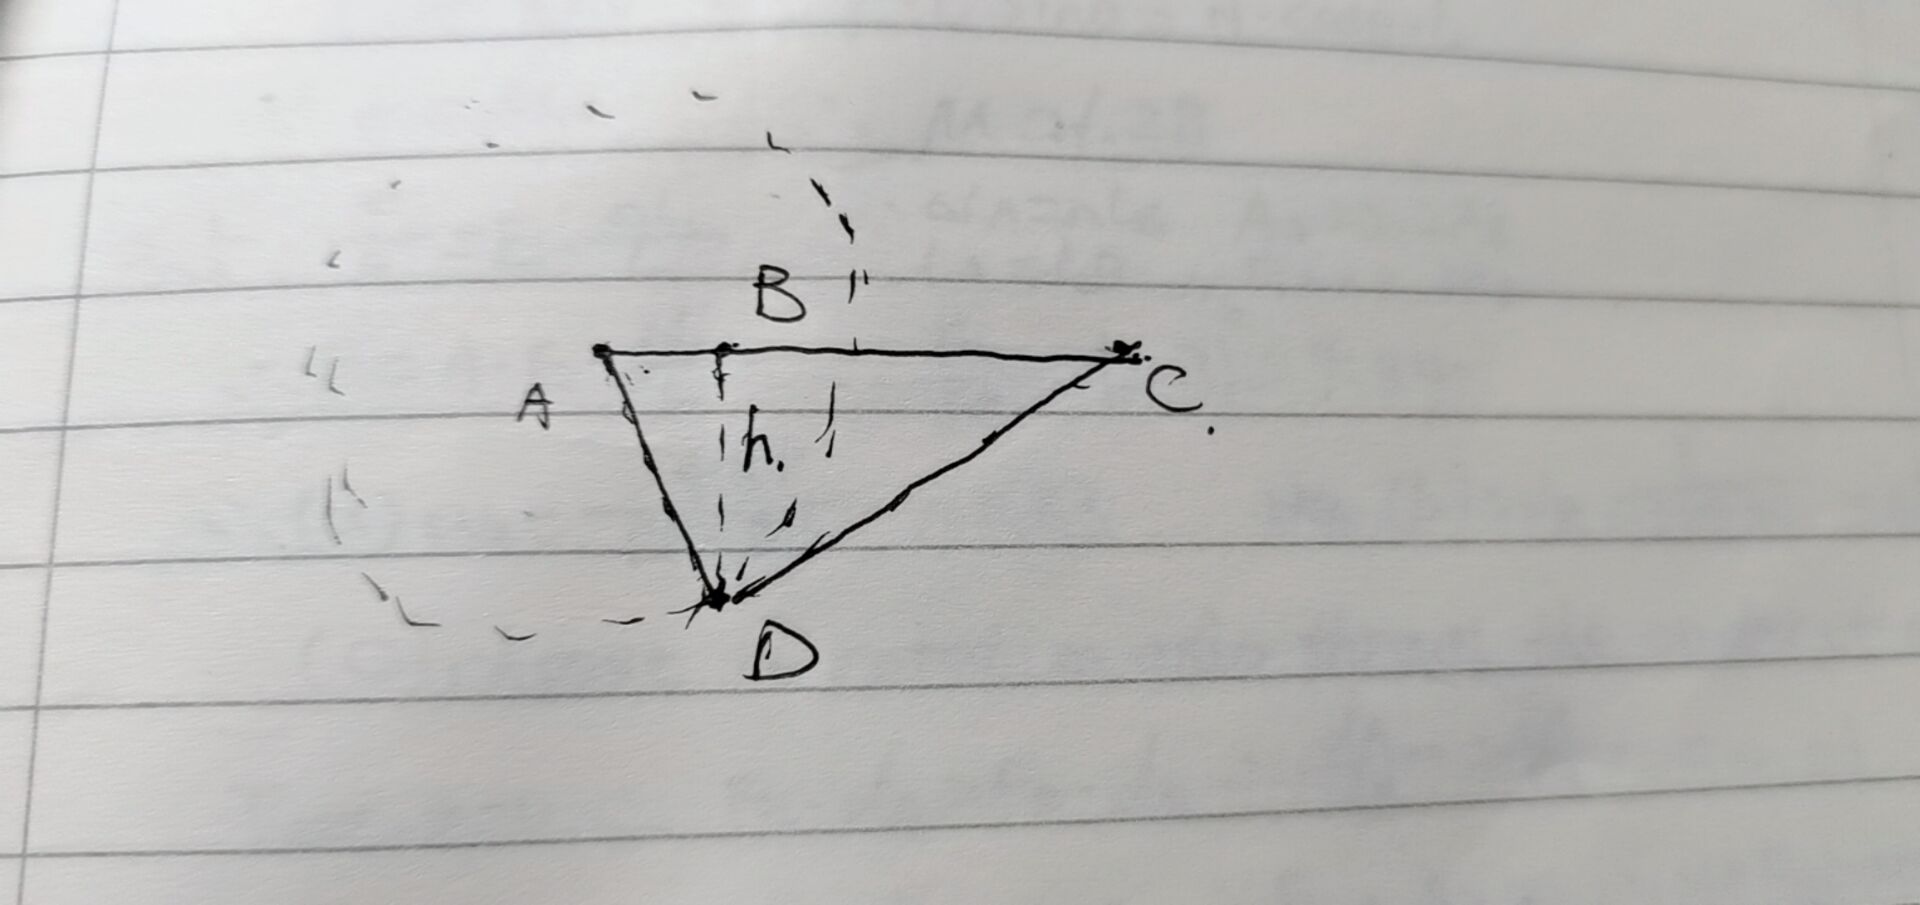 B
A
C.
h.
D